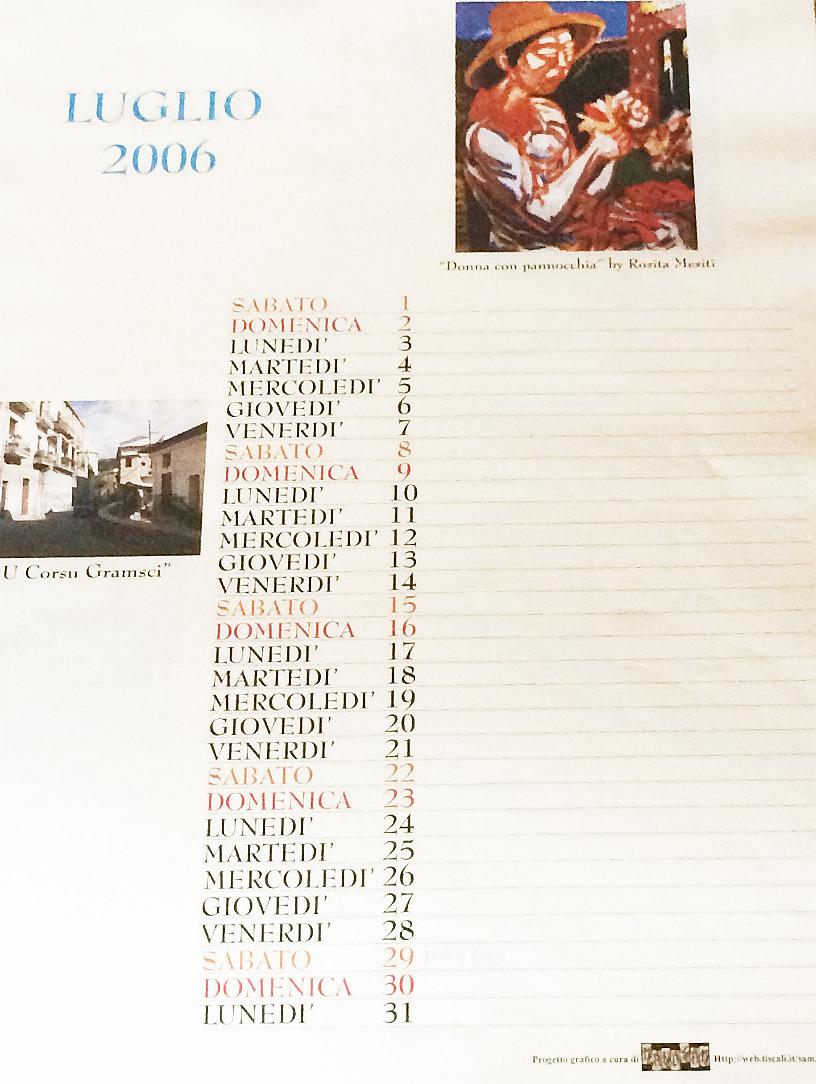 LUGLIO
2006
"Donna con pannocchia" by Rosita Mesiti
SABATO 1
DOMENICA 2
LUNEDI' 3
MARTEDI' 4
MERCOLEDI' 5
GIOVEDI' 6
VENERDI' 7
SABATO 8
DOMENICA 9
LUNEDI' 10
MARTEDI' 11
MERCOLEDI' 12
GIOVEDI' 13
VENERDI' 14
SABATO 15
DOMENICA 16
LUNEDI' 17
MARTEDI' 18
MERCOLEDI' 19
GIOVEDI' 20
VENERDI' 21
SABATO 22
DOMENICA 23
LUNEDI' 24
MARTEDI' 25
MERCOLEDI' 26
GIOVEDI' 27
VENERDI' 28
SABATO 29
DOMENICA 30
LUNEDI' 31
U Corsu Gramsci"
Progetto grafico a cura di Http://web.tiscali.it/sam